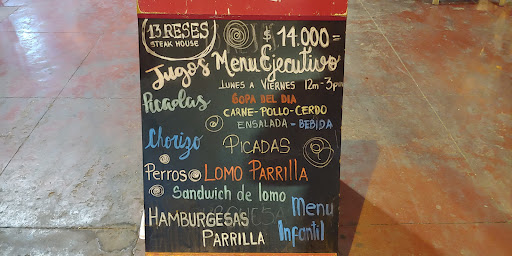 13 RESES
STEAK HOUSE
$ 14.000=
Jugos Menu Ejecutivo
LUNES A VIERNES 12m-3pm
Picadas
SOPA DEL DIA
CARNE-POLLO-CERDO
ENSALADA - BEBIDA
Chorizo
PICADAS
Perros
LOMO PARRILLA
Sandwich de lomo
HAMBURGESAS
PARRILLA
Menu
Infantil